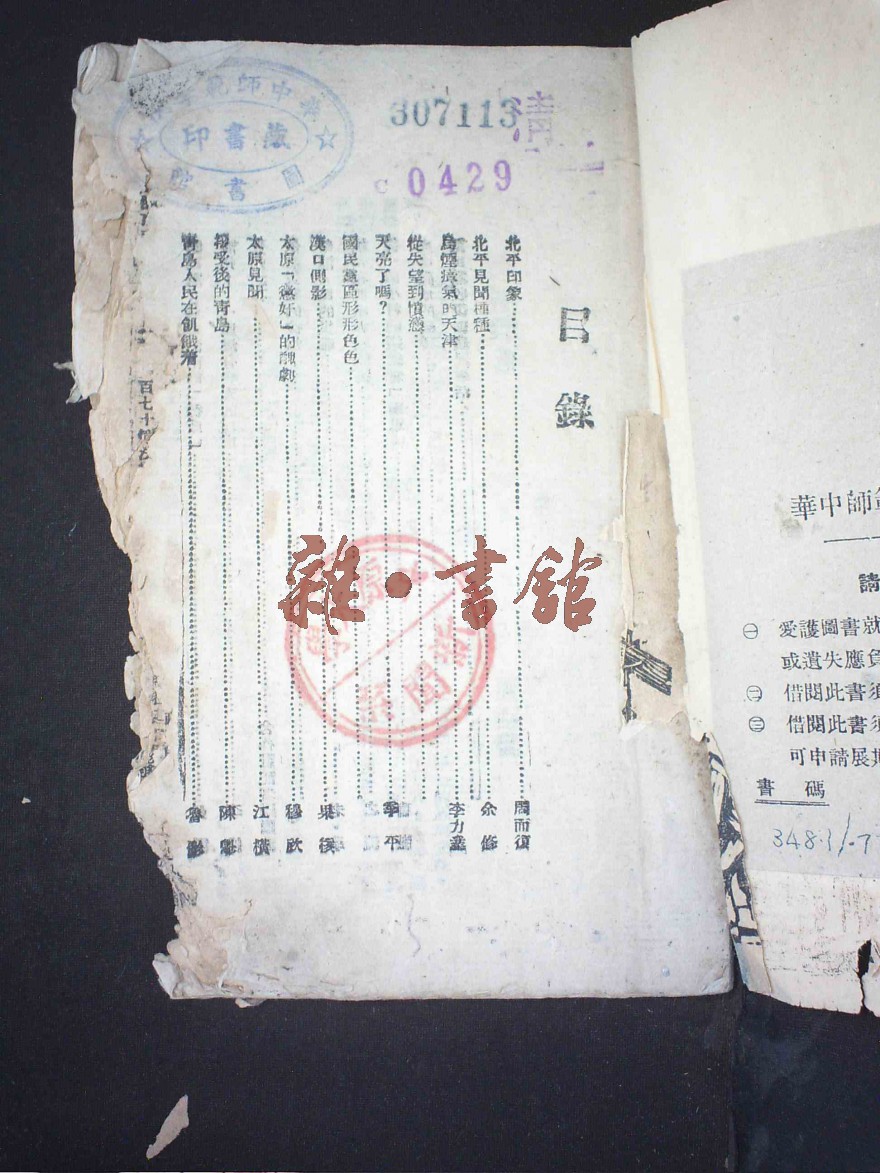 307113
清
C 0429
華中師範
藏書印
圖書館
目錄
北平印象 周而復
北平見聞種種 余修
烏煙瘴氣的天津 李力
從失望到憤懣
天亮了嗎？ 季平
國民黨區形形色色
漢口側影
太原「慈好」的醜劇 穆欣
太原見聞 江橫
接受後的青島 陳
青島人民在飢餓着 魯彭
百七十
雜·書館
華中師
請
㊀ 愛護圖書就
或遺失應負
㊁ 借閱此書須
㊂ 借閱此書須
可申請展期
書碼
348.1